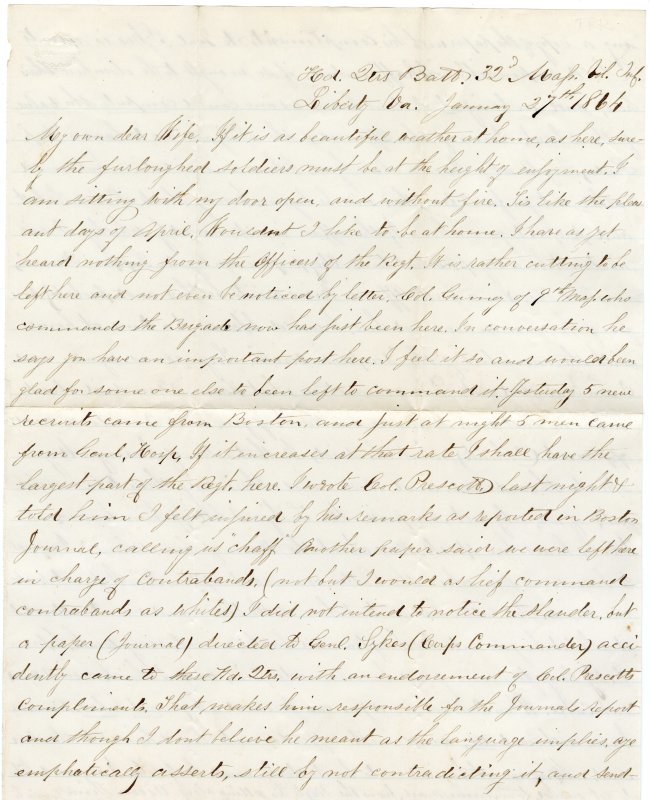 Hd. Qts Batt. 32d Mass. Vol. Inf.
Liberty Va. January 27th 1864
My own dear Wife, If it is as beautiful weather at home, as here, sure-
ly the furloughed soldiers must be at the height of enjoyment. I
am sitting with my door open, and without fire. Tis like the pleas
ant days of April. Wouldnt I like to be at home. I have as yet
heard nothing from the Officers of the Regt. It is rather cutting to be
left here and not even be noticed by letter. Col. of 9th Mass who
commands the Brigade now has just been here. In conversation he
says you have an important post here. I feel it so and would been
glad for some one else to been left to command it. Yesterday 5 new
recruits came from Boston, and just at night 5 men came
from Genl. Hosp. If it increases at that rate I shall have the
largest part of the Regt. here. I wrote Col. Prescott last night &
told him I felt injured by his remarks as reported in Boston
Journal, calling us "chaff" Another paper said we were left here
in charge of contrabands, (not but I would as lief command
contrabands as whites) I did not intend to notice the slander, but
a paper (Journal) directed to Genl. Sykes (Corps Commander) acci
dently came to these Hd. Qtrs. with an endorsement of Col. Prescotts
compliments. That makes him responsible for the Journals report
and though I dont believe he meant as the language implies, aye
emphatically asserts, still by not contradicting it, and send-